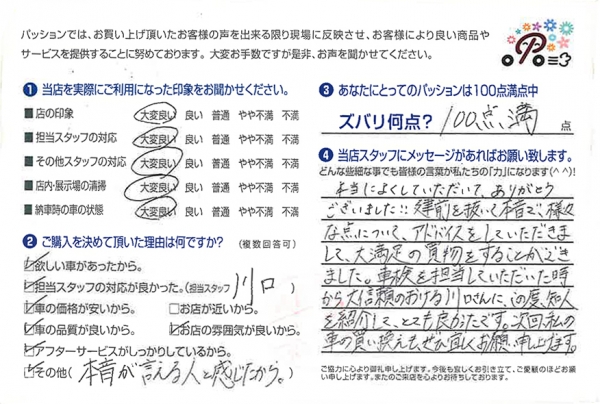 パッションでは、お買い上げ頂いたお客様の声を出来る限り現場に反映させ、お客様により良い商品や
サービスを提供することに努めております。大変お手数ですが是非、お声を聞かせてください。
❶ 当店を実際にご利用になった印象をお聞かせください。
■ 店の印象 大変良い 良い 普通 やや不満 不満
■ 担当スタッフの対応 大変良い 良い 普通 やや不満 不満
■ その他スタッフの対応 大変良い 良い 普通 やや不満 不満
■ 店内・展示場の清掃 大変良い 良い 普通 やや不満 不満
■ 納車時の車の状態 大変良い 良い 普通 やや不満 不満
❷ ご購入を決めて頂いた理由は何ですか?(複数回答可)
☑欲しい車があったから。
☑担当スタッフの対応が良かった。(担当スタッフ 川口 )
☑車の価格が安いから。 □お店が近いから。
☑車の品質が良いから。 ☑お店の雰囲気が良いから。
☑アフターサービスがしっかりしているから。
☑その他( 本音が言える人と感じたから。)
❸ あなたにとってのパッションは100点満点中
ズバリ何点? 100点満 点
❹ 当店スタッフにメッセージがあればお願い致します。
どんな些細な事でも皆様の言葉が私たちの「力」になります(^^)!
本当によくしていただいて、ありがとう
ございました!! 建前を抜いて本音で、様々
な点について、アドバイスをしていただきま
して、大満足の買物をすることができ
ました。車検を担当していただいた時
から大信頼のおける川口さんに、この度、知人
を紹介して、とても良かったです。次回、私の
車の買い換えもぜひ宜しくお願い申し上げます。
ご協力に心より御礼申し上げます。今後も宜しくお引き立て、ご愛顧のほどお願い申し上げます。またのご来店を心よりお待ちしております。